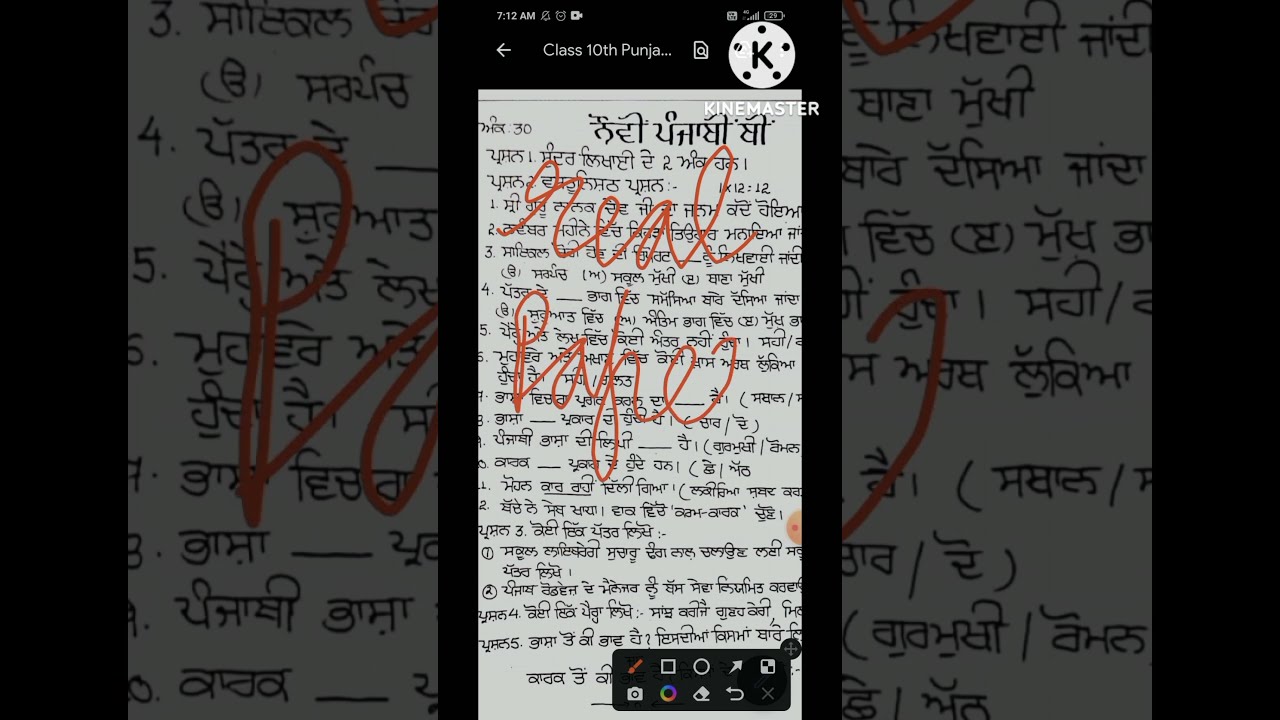 7:12 AM
4G 29
Class 10th Punja...
K
KINEMASTER
ਅੰਕ: 30 ਨੌਵੀਂ ਪੰਜਾਬੀ ਬੀ
ਪ੍ਰਸ਼ਨ 1. ਸੁੰਦਰ ਲਿਖਾਈ ਦੇ 2 ਅੰਕ ਹਨ।
ਪ੍ਰਸ਼ਨ 2 ਵਸਤੂਨਿਸ਼ਠ ਪ੍ਰਸ਼ਨ:- 1×12=12
1. ਸ੍ਰੀ ਗੁਰੂ ਨਾਨਕ ਦੇਵ ਜੀ ਦਾ ਜਨਮ ਕਦੋਂ ਹੋਇਆ
2. ਨਵੰਬਰ ਮਹੀਨੇ ਵਿੱਚ ਕਿਹੜਾ ਤਿਉਹਾਰ ਮਨਾਇਆ ਜਾਂ
3. ਸਾਇਕਲ ਚੋਰੀ ਹੋਣ ਦੀ ਰਿਪੋਰਟ ___ ਨੂੰ ਲਿਖਵਾਈ ਜਾਂਦੀ
(ੳ) ਸਰਪੰਚ (ਅ) ਸਕੂਲ ਮੁੱਖੀ (ੲ) ਥਾਣਾ ਮੁੱਖੀ
4. ਪੱਤਰ ਦੇ ___ ਭਾਗ ਵਿੱਚ ਸਮੱਸਿਆ ਬਾਰੇ ਦੱਸਿਆ ਜਾਂਦਾ
(ੳ) ਸ਼ੁਰੂਆਤ ਵਿੱਚ (ਅ) ਅੰਤਿਮ ਭਾਗ ਵਿੱਚ (ੲ) ਮੁੱਖ ਭਾ
5. ਪੈਰ੍ਹੇ ਅਤੇ ਲੇਖ ਵਿੱਚ ਕੋਈ ਅੰਤਰ ਨਹੀਂ ਹੁੰਦਾ। ਸਹੀ/
6. ਮੁਹਾਵਰੇ ਅਤੇ ਅਖਾਣ ਵਿੱਚ ਕੋਈ ਖ਼ਾਸ ਅਰਥ ਲੁੱਕਿਆ
ਹੁੰਦਾ ਹੈ। ਸਹੀ/ਗਲਤ
ਭਾਸ਼ਾ ਵਿਚਾਰ ਪ੍ਰਗਟ ਕਰਨ ਦਾ ___ ਹੈ। (ਸਥਾਨ/ਸ
ਭਾਸ਼ਾ ___ ਪ੍ਰਕਾਰ ਦੀ ਹੁੰਦੀ ਹੈ। (ਚਾਰ/ਦੋ)
ਪੰਜਾਬੀ ਭਾਸ਼ਾ ਦੀ ਲਿਪੀ ___ ਹੈ। (ਗੁਰਮੁਖੀ/ਰੋਮਨ
0. ਕਾਰਕ ___ ਪ੍ਰਕਾਰ ਦੇ ਹੁੰਦੇ ਹਨ। (ਛੇ/ਅੱਠ
1. ਮੋਹਨ ਕਾਰ ਰਾਹੀਂ ਦਿੱਲੀ ਗਿਆ। (ਲਕੀਰਿਆ ਸ਼ਬਦ ਕਰ
2. ਬੱਚੇ ਨੇ ਸੇਬ ਖਾਧਾ। ਵਾਕ ਵਿੱਚੋਂ 'ਕਰਮ-ਕਾਰਕ' ਚੁਣੋ।
ਪ੍ਰਸ਼ਨ 3. ਕੋਈ ਇੱਕ ਪੱਤਰ ਲਿਖੋ:-
① ਸਕੂਲ ਲਾਇਬਰੇਰੀ ਸੁਚਾਰੂ ਢੰਗ ਨਾਲ ਚਲਾਉਣ ਲਈ ਸਕੂ
ਪੱਤਰ ਲਿਖੋ।
② ਪੰਜਾਬ ਰੋਡਵੇਜ਼ ਦੇ ਮੈਨੇਜਰ ਨੂੰ ਬੱਸ ਸੇਵਾ ਨਿਯਮਿਤ ਕਰਵਾ
ਪ੍ਰਸ਼ਨ 4. ਕੋਈ ਇੱਕ ਪੈਰ੍ਹਾ ਲਿਖੋ:- ਸਾਂਝ ਕਰੀਜੈ ਗੁਣਹ ਕੇਰੀ, ਮਿ
ਪ੍ਰਸ਼ਨ 5. ਭਾਸ਼ਾ ਤੋਂ ਕੀ ਭਾਵ ਹੈ? ਇਸਦੀਆਂ ਕਿਸਮਾਂ ਬਾਰੇ ਲਿ
ਕਾਰਕ ਤੋਂ ਕੀ ਭਾਵ
Real
Paper